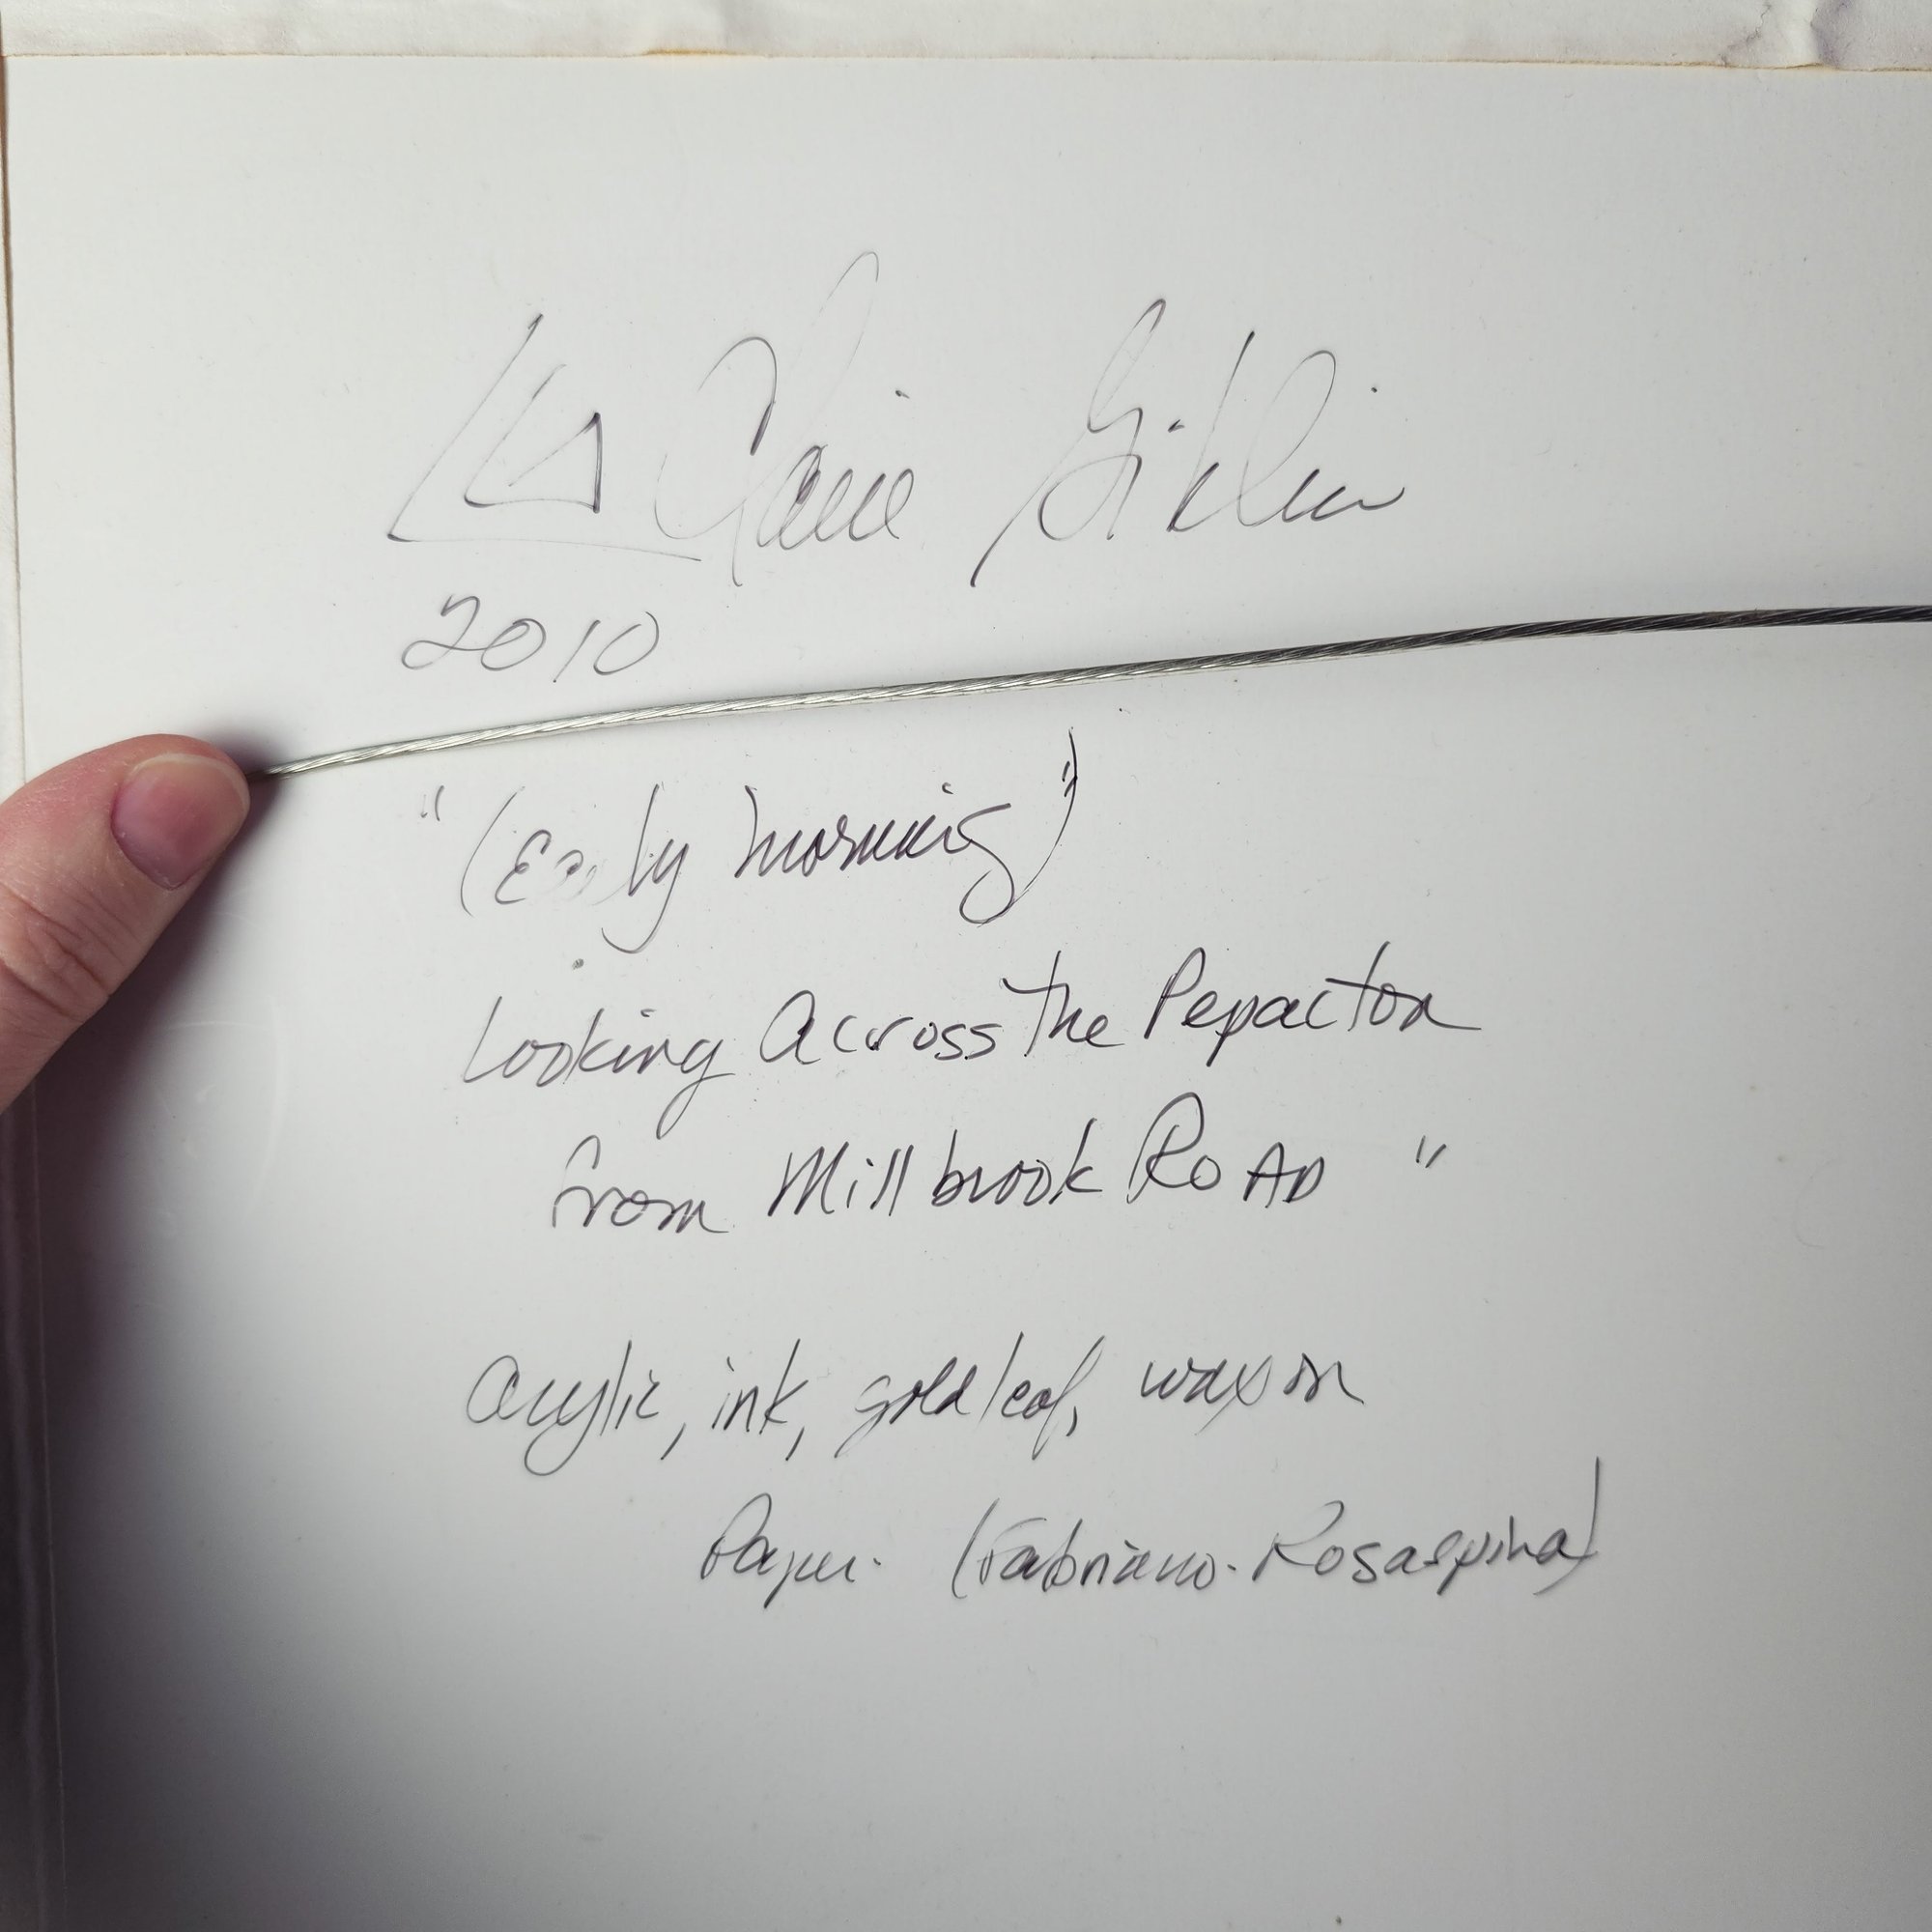 2010
"(Early morning)"
Looking Across The Pepacton
from Millbrook ROAD "
acrylic, ink, gold leaf, wax on
Paper. (Fabriano-Rosaspina)